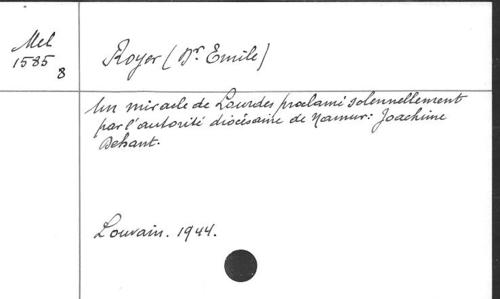 Mel
1585
8
Royer (Dr. Emile)
Un miracle de Lourdes proclamé solennellement
par l'autorité diocésaine de Namur: Joachime
Dehant.
Louvain. 1944.